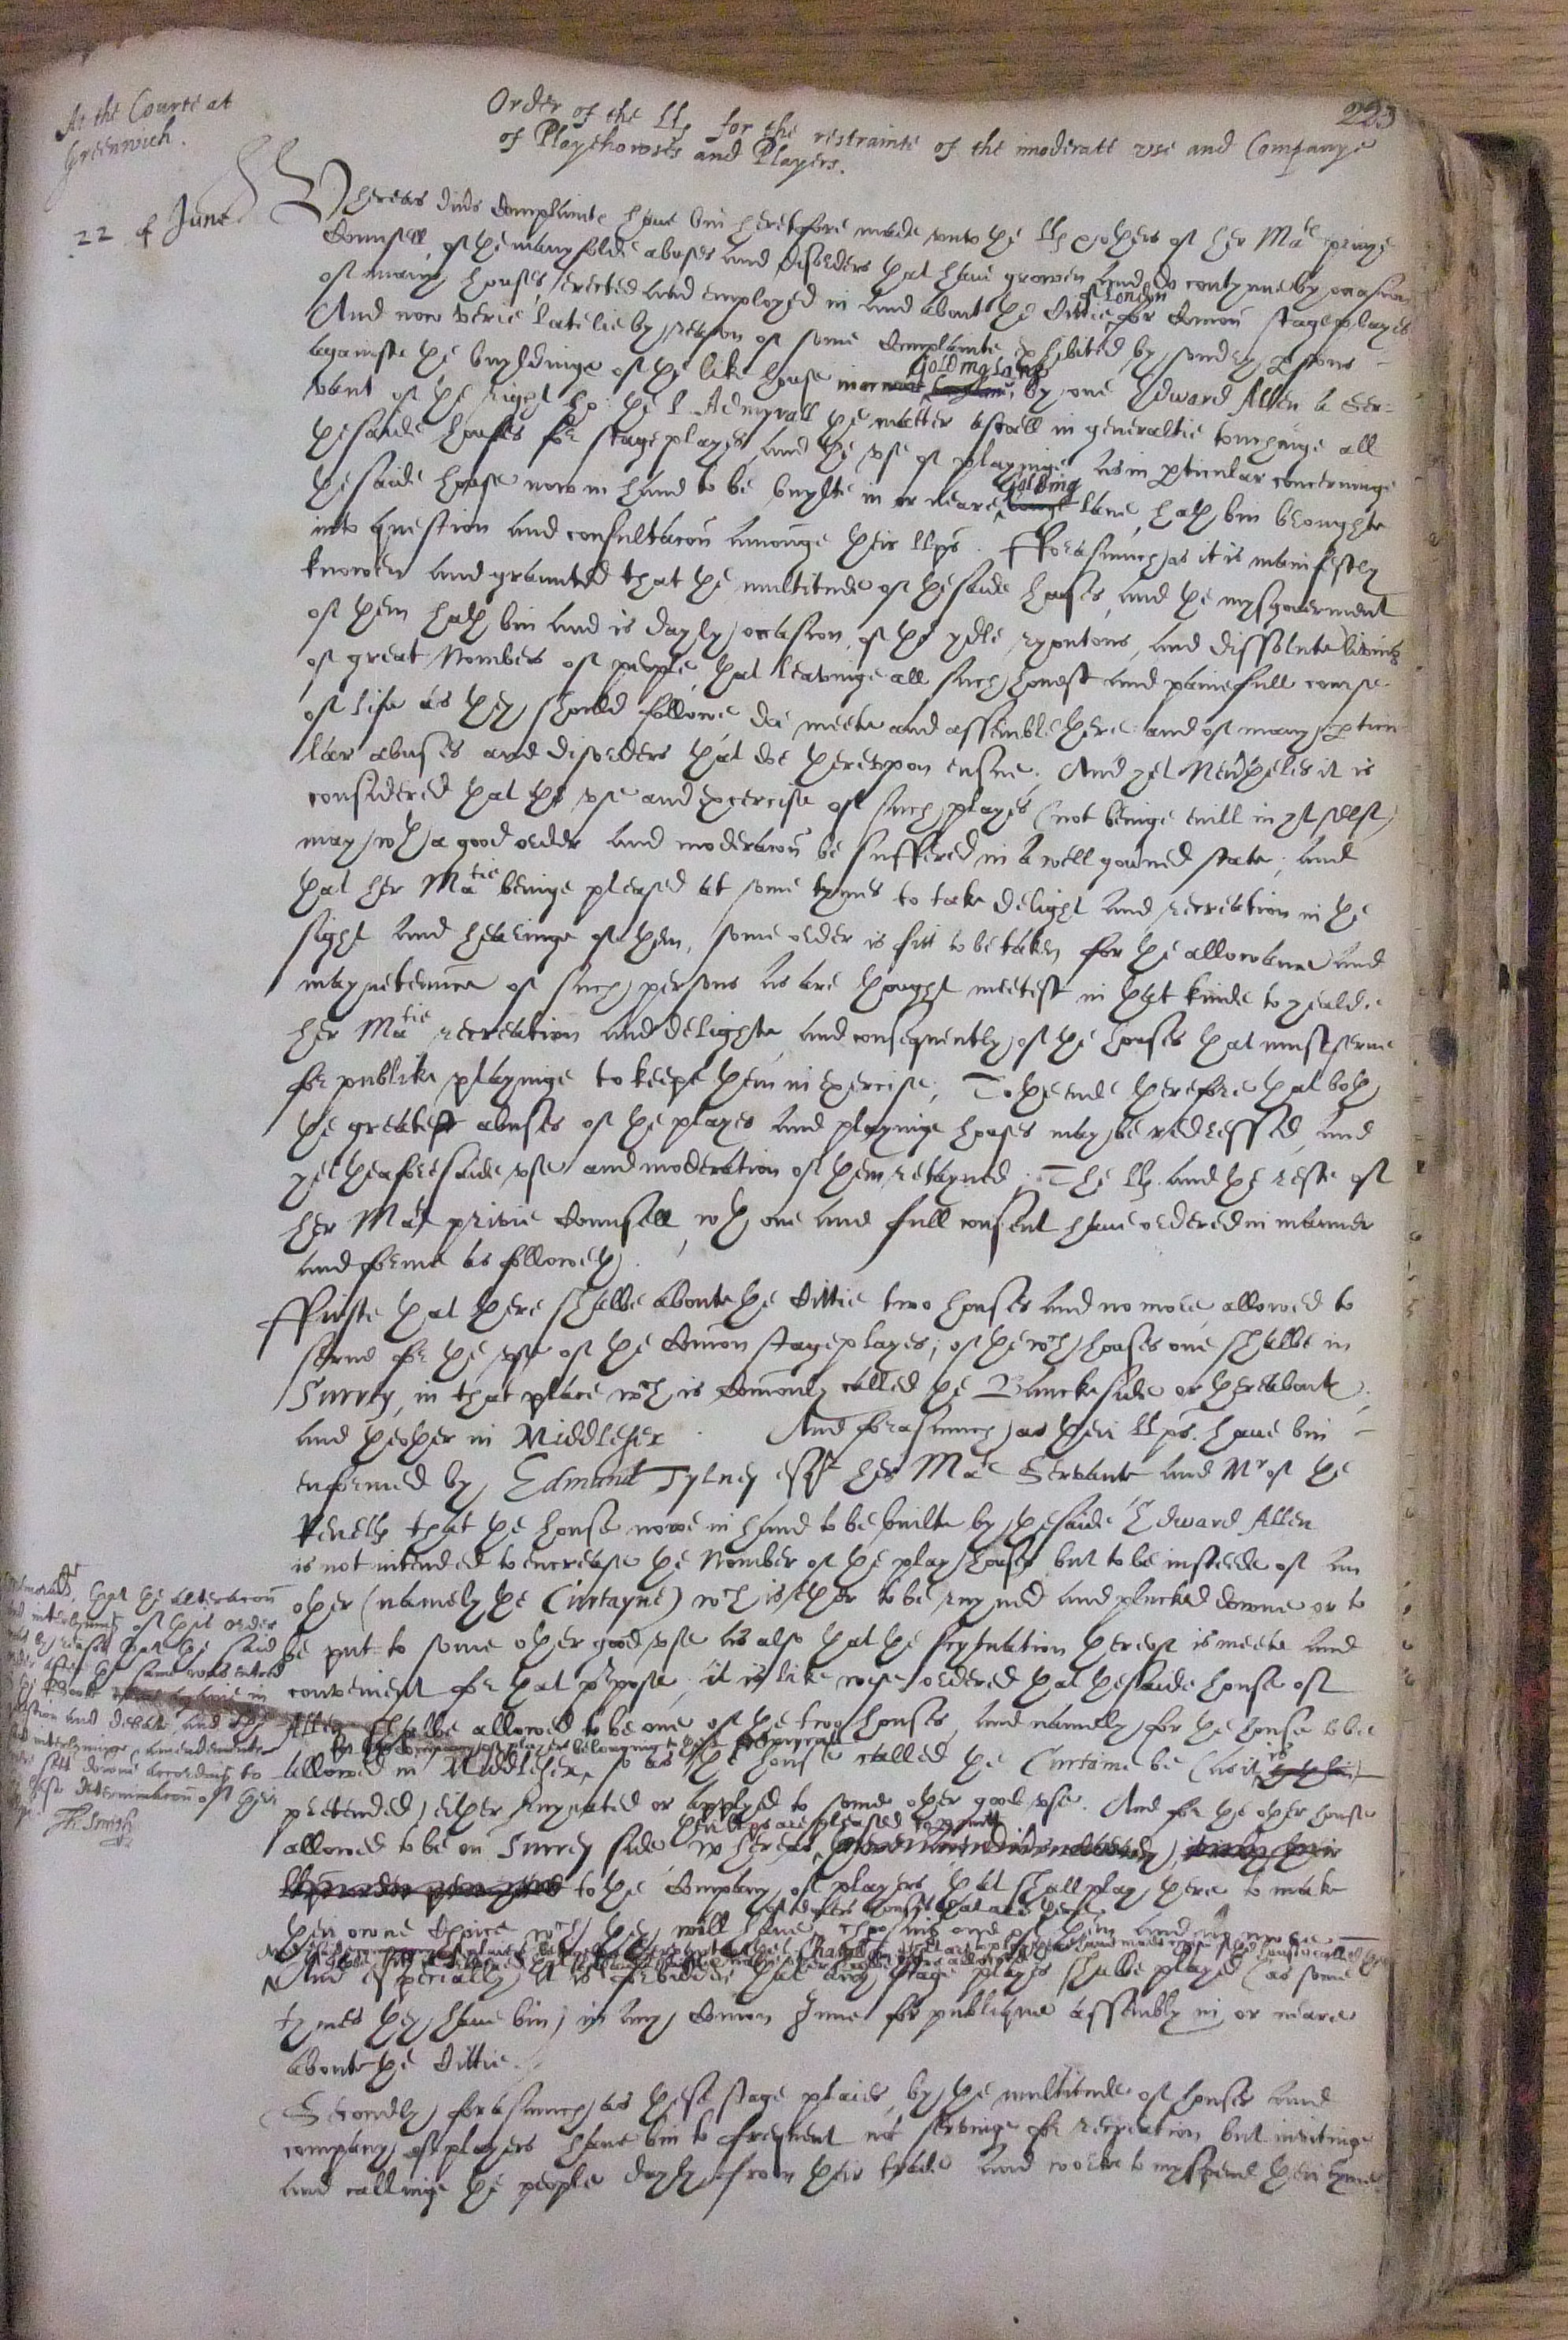 223
At the Courte at
Greenwich.
22 of June
Order of the LLs for the restrainte of the imoderate vse and Companye
of Playehowses and Players.
Whereas divers Complaintes have bin heretofore made vnto the LLs & others of her Maties privye
Counsell, of the manyfolde abuses and disorders that have growen and do contynue by occasion
of many houses erected and employed in and about the Cittie of London for Comon stage playes
And now verie latelie by reason of some Complainte exhibited by sondry persons
againste the buyldinge of the like house in or neare Golding lane by one Edward Allen a Ser=
vant of the right ho: the L. Admyrall the matter aswell in generaltie touchinge all
the saide houses for stage playes and the vse of playinge, as in perticular concerninge
the saide house now in hand to be buylte in or neare Golding lane, hath bin broughte
into question and consultacon amonge their llps. Fforasmuch as it is manifestly
knowen and graunted that the multitude of the saide houses, and the mysgoverment
of them hath bin and is dayly occasion of the ydle, ryoutous, and dissolute living
of great Nombers of people, that leavinge all such honest and painefull course
of life as they should followe doe meete and assemble there, and of many perticu-
lar abuses and disorders that doe therevpon ensue. And yet Nevertheles it is
considered that the vse and exercise of such playes (not beinge evill in yt self)
may wth a good order and moderacon be suffered in a well governed state, and
that her Matie beinge pleased at some tymes to take delight and recreation in the
sight and hearinge of them, some order is fitt to be taken for the allowance and
mayntenance of such persons as are thought meetest in that kinde to yealde
her Matie recreation and delighte, and consequently of the houses that must serve
for publike playinge to keepe them in exercise. To the ende therefore that both
the greatest abuses of the playes and playinge houses may be redressed, and
yet the aforesaide vse and moderation of them retayned. The LLs and the reste of
her Mats privie Counsell, wth one and full consent have ordered in manner
and forme as followeth.
Ffirste that there shalbe aboute the Cittie two houses and no more, allowed to
serve for the vse of the Comon stage playes; of the wch houses one shalbe in
Surrey, in that place wch is Comonly called the Banckeside or thereaboute,
and the other in Middlesex. And forasmuch as their llps. have bin
enformed by Edmund Tylney esqr her Mats Servante and Mr of the
Revells that the house nowe in hand to be builte by the saide Edward Allen
is not intended to encrease the Nomber of the play houses but to be insteede of an
other (namely the Curtayne) wch is ether to be ruyned and plucked downe or to
be put to some other good vse as also that the scytuation thereof is meete and
convenient for that purpose, it is likewise ordered that the saide house of
Allen shalbe allowed to be one of the two houses, and namely for the house to be
allowed in Middlesex, for the Company of players belonging to the L. Admyrall so as the house called the Curtaine be (as it is
pretended) either ruynated or applyed to some other good vse. And for the other house
allowed to be on Surrey side, whereas their llps are pleased to permitt
to the Company of players, that shall play there to make
their owne Choice wch they will have, of divers houses that are there choosing one of them and no more
And especially it is forbidden that any stage playes shalbe played (as some
tymes they have bin) in any Comon Inne for publique assembly in or neare
aboute the Cittie.
Secondly, forasmuch as these stage plaies, by the multitude of houses and
company of players have bin to frequent not servinge for recreation but inviting
and callinge the people dayly from their trade and worke to myspend their tyme
that the alteracon
and interlyning of this order
was by reason that the said
order after the same was entred
in
question and debate, and the
said interlyninge & amendementes
sett downe according to
the last determinacon of their
Th. Smith